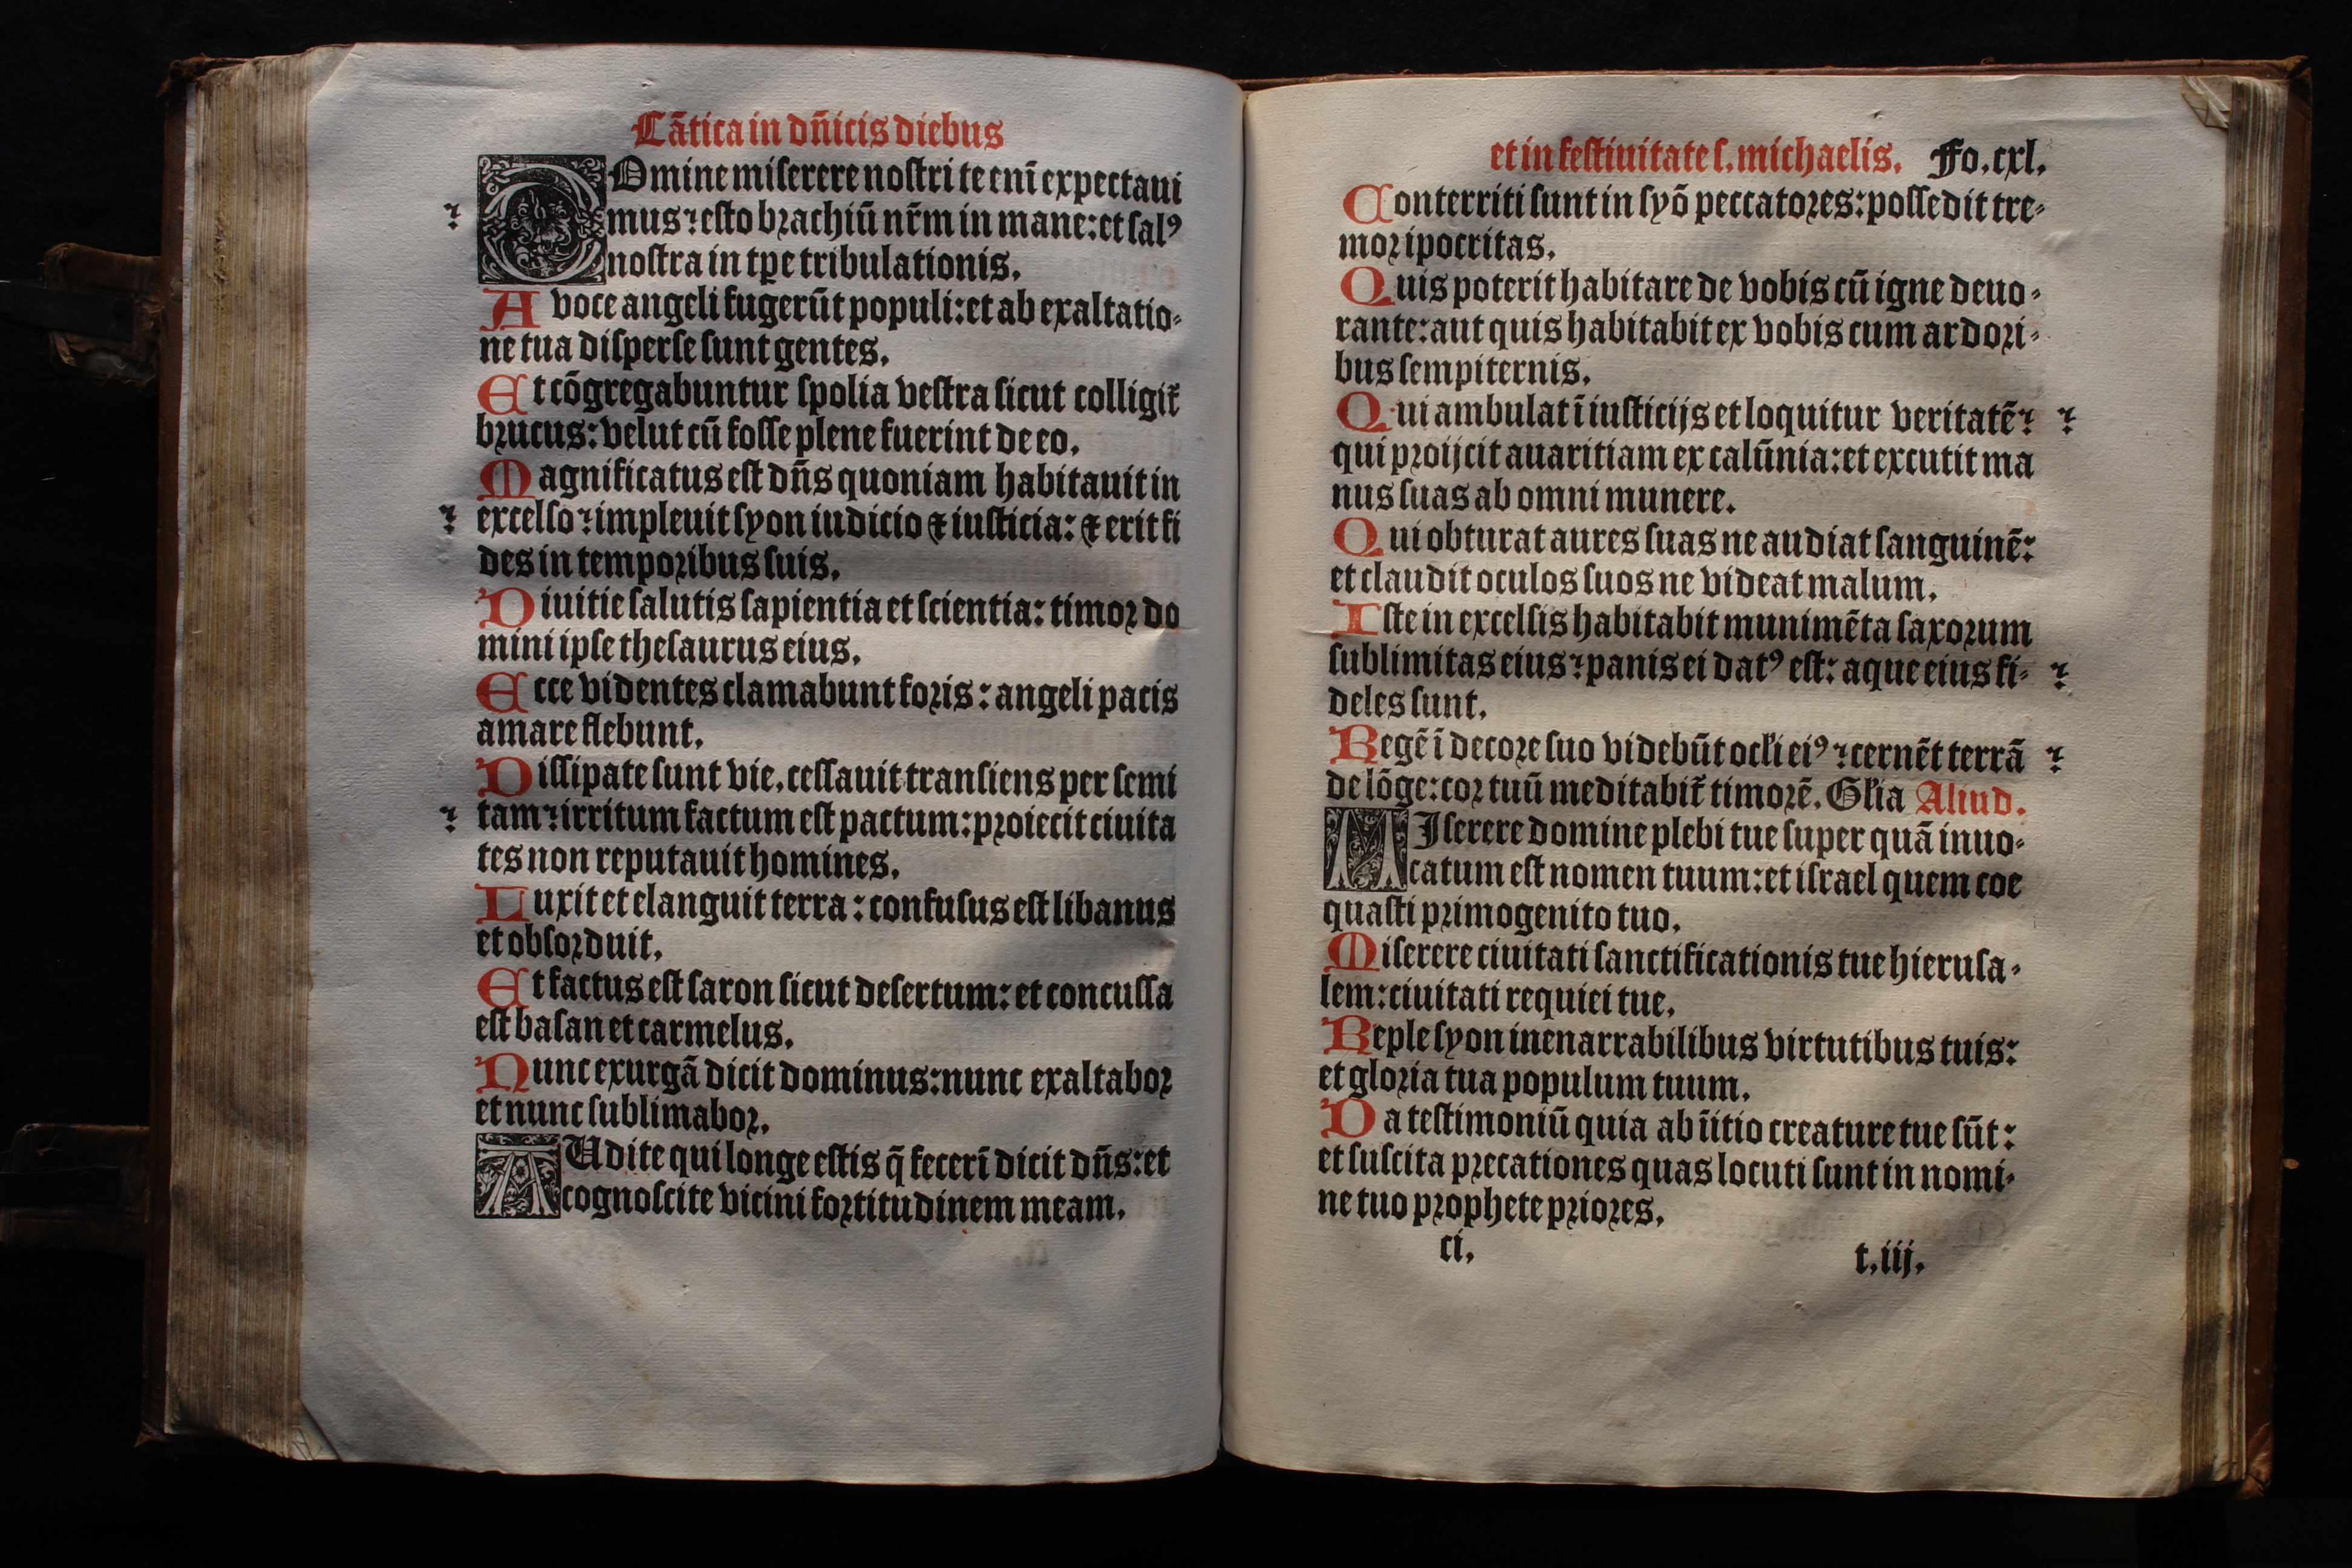 Cãtica in dñicis diebus
DOmine miſerere noſtri te enĩ expectaui
mus⁊ eſto brachiũ nr̃m in mane: et ſalꝰ
noſtra in tꝑe tribulationis.
A voce angeli fugerũt populi: et ab exaltatio⸗
ne tua diſperſe ſunt gentes.
Et cõgregabuntur ſpolia veſtra ſicut colligit̃
brucus: velut cũ foſſe plene fuerint de eo.
Magnificatus eſt dñs quoniam habitauit in
excelſo⁊ impleuit ſyon iudicio ⁊ iuſticia: ⁊ erit fi
des in temporibus ſuis.
Diuitie ſalutis ſapientia et ſcientia: timor do
mini ipſe theſaurus eius.
Ecce videntes clamabunt foris: angeli pacis
amare flebunt.
Diſſipate ſunt vie. ceſſauit tranſiens per ſemi
tam⁊ irritum factum eſt pactum: proiecit ciuita
tes non reputauit homines.
Luxit et elanguit terra: confuſus eſt libanus
et obſorduit.
Et factus eſt ſaron ſicut deſertum: et concuſſa
eſt baſan et carmelus.
Nunc exurgã dicit dominus: nunc exaltabor
et nunc ſublimabor.
AUdite qui longe eſtis q̃ fecerĩ dicit dñs: et
cognoſcite vicini fortitudinem meam.
et in feſtiuitate ſ. michaelis. Fo. cxl.
Conterriti ſunt in ſyõ peccatores: poſſedit tre⸗
mor ipocritas.
Quis poterit habitare de vobis cũ igne deuo⸗
rante: aut quis habitabit ex vobis cum ardori⸗
bus ſempiternis.
Qui ambulat ĩ iuſticijs et loquitur veritatẽ⁊
qui proijcit auaritiam ex calũnia: et excutit ma
nus ſuas ab omni munere.
Qui obturat aures ſuas ne audiat ſanguinẽ:
et claudit oculos ſuos ne videat malum.
Iſte in excelſis habitabit munimẽta ſaxorum
ſublimitas eius⁊ panis ei datꝰ eſt: aque eius fi⸗
deles ſunt.
Regẽ ĩ decore ſuo videbũt ocl̃i eiꝰ⁊ cernẽt terrã
de lõge: cor tuũ meditabit̃ timorẽ. Gl̃ia Aliud.
MIſerere domine plebi tue ſuper quã inuo⸗
catum eſt nomen tuum: et iſrael quem coe
quaſti primogenito tuo.
Miſerere ciuitati ſanctificationis tue hieruſa⸗
lem: ciuitati requiei tue.
Reple ſyon inenarrabilibus virtutibus tuis:
et gloria tua populum tuum.
Da teſtimoniũ quia ab ĩitio creature tue ſũt:
et ſuſcita precationes quas locuti ſunt in nomi⸗
ne tuo prophete priores.
ci. t.iij.